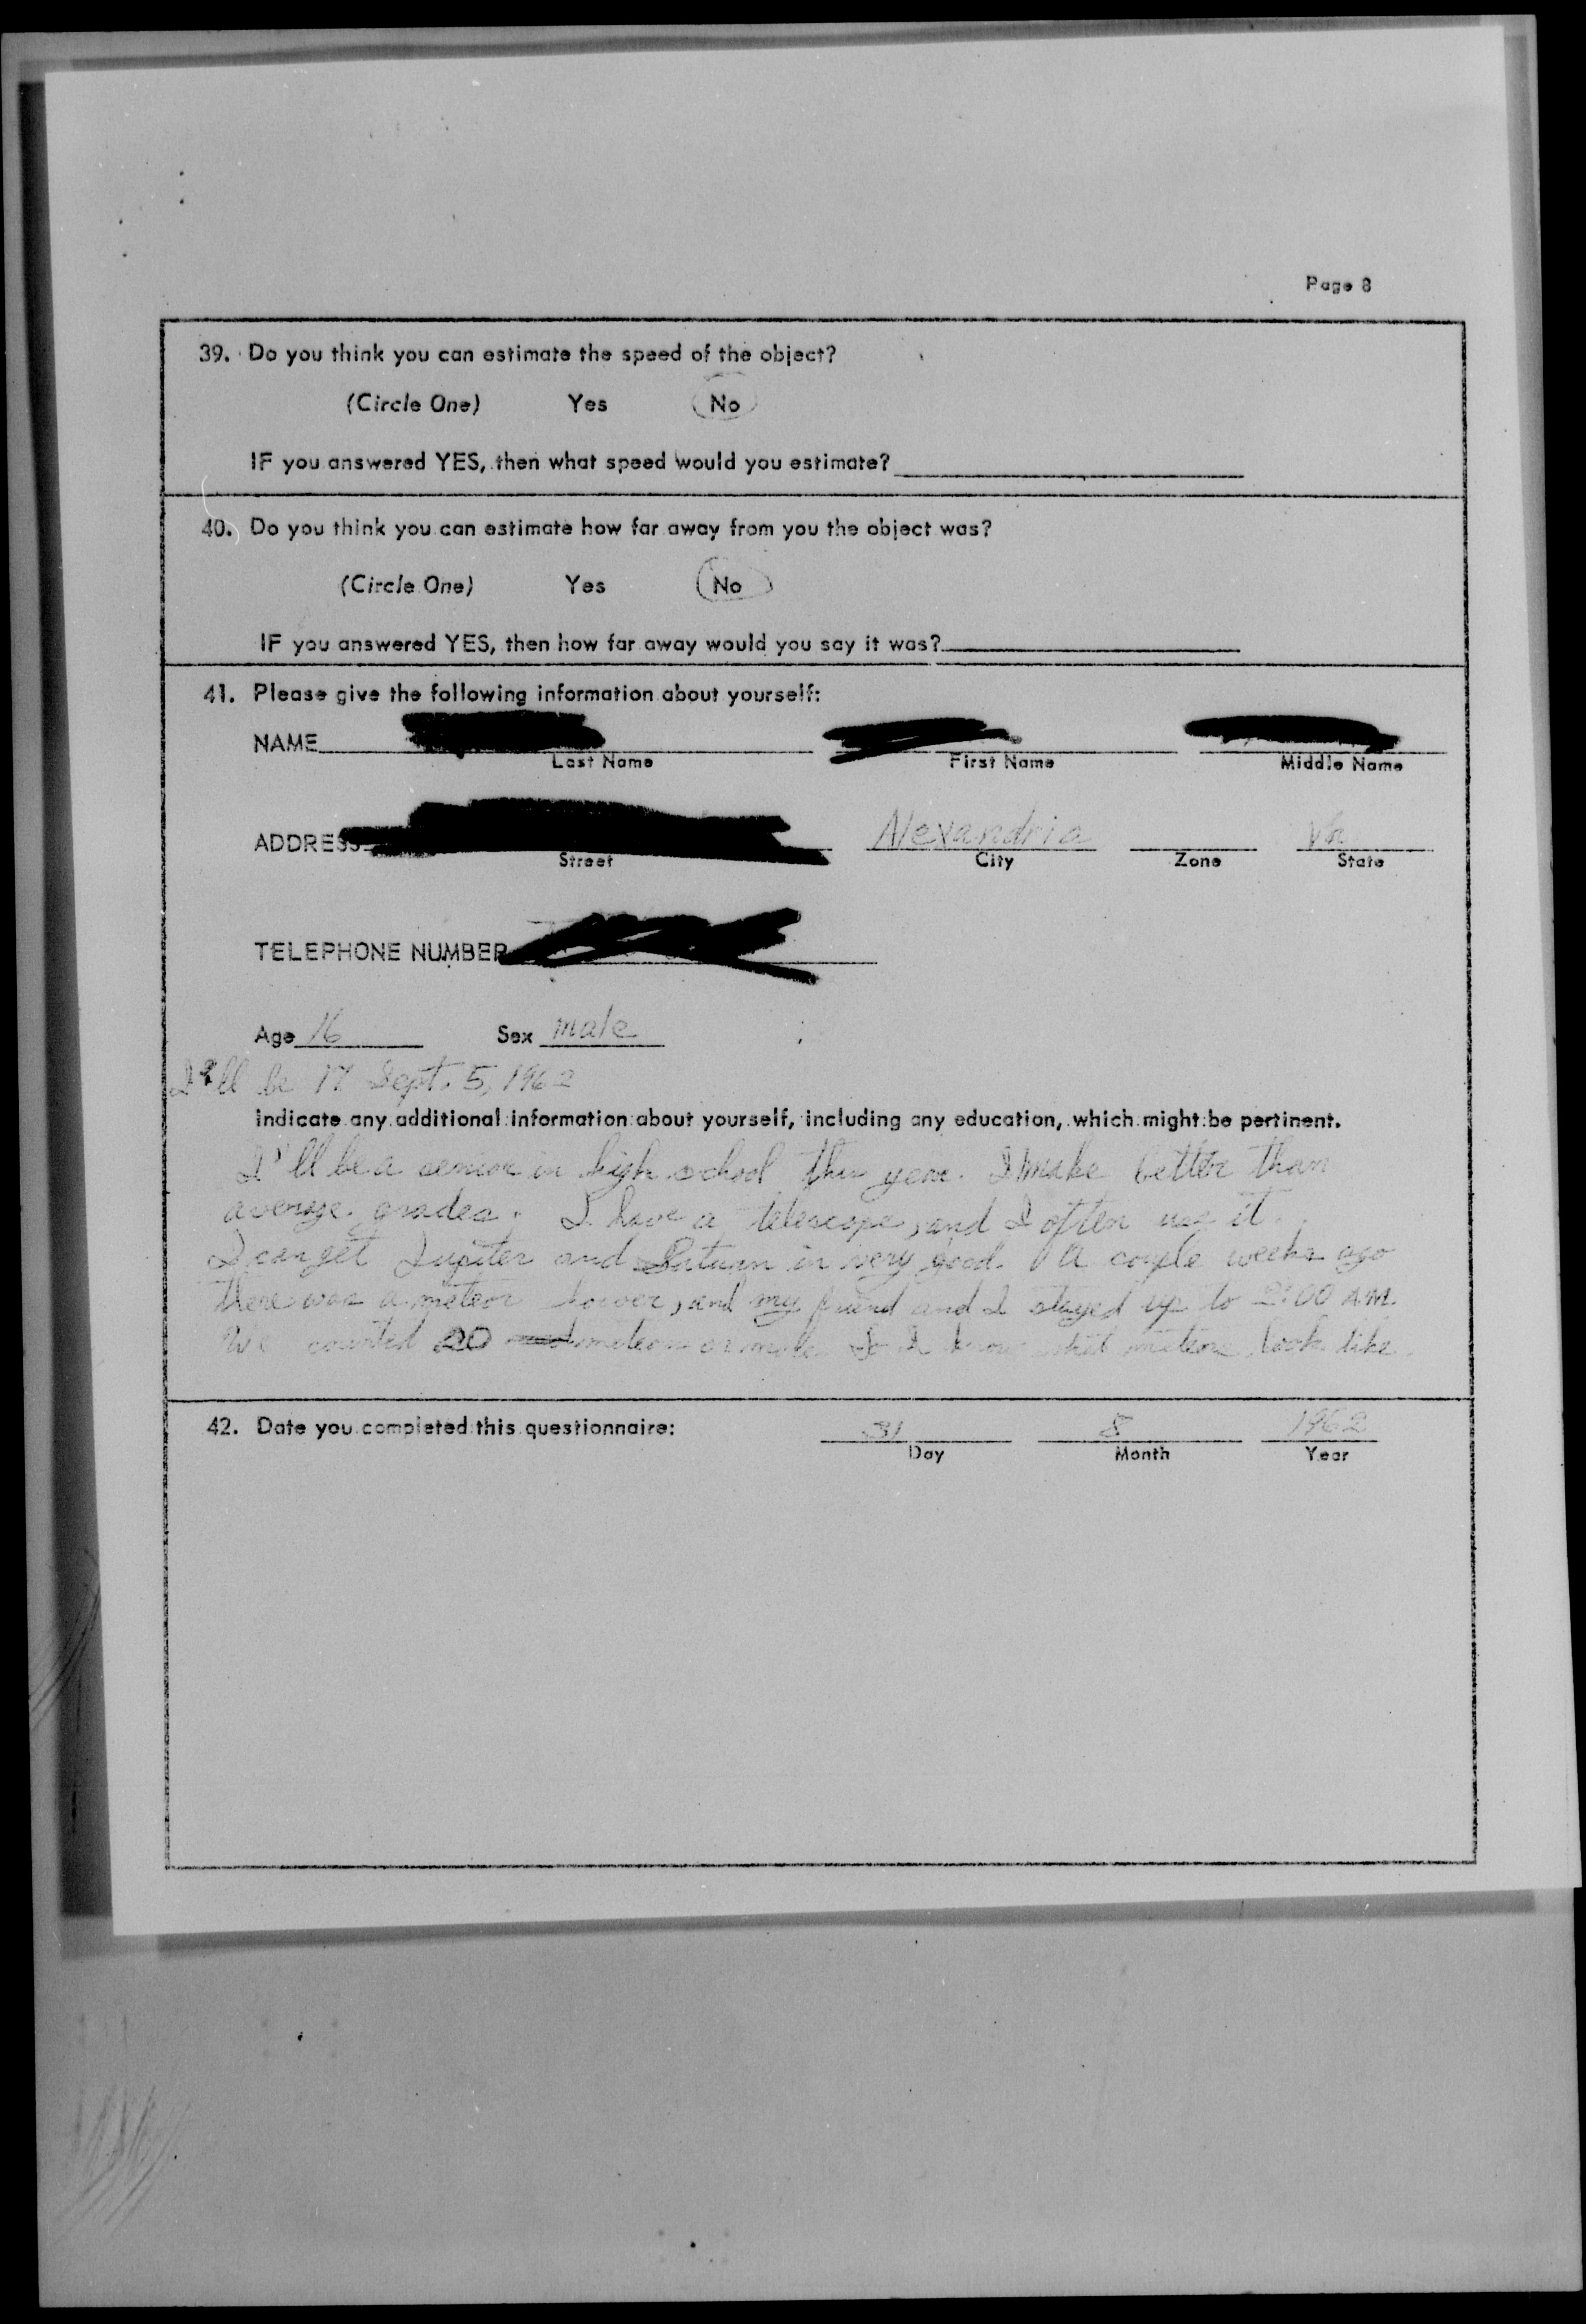 Page 8
39. Do you think you can estimate the speed of the object?
(Circle One) Yes No
IF you answered YES, then what speed would you estimate?
40. Do you think you can estimate how far away from you the object was?
(Circle One) Yes No
IF you answered YES, then how far away would you say it was?
41. Please give the following information about yourself:
NAME
Last Name First Name Middle Name
ADDRESS Alexandria Va
Street City Zone State
TELEPHONE NUMBER
Age 16 Sex male
I'll be 17 Sept. 5, 1962
Indicate any additional information about yourself, including any education, which might be pertinent.
I'll be a senior in high school this year. I make better than
average grades. I have a telescope, and I often use it.
I can get Jupiter and Saturn in very good. A couple weeks ago
there was a meteor shower, and my friend and I stayed up to 2:00 A.M.
We counted 20 meteors or more. So I know what meteors look like.
42. Date you completed this questionnaire: 31 8 1962
Day Month Year